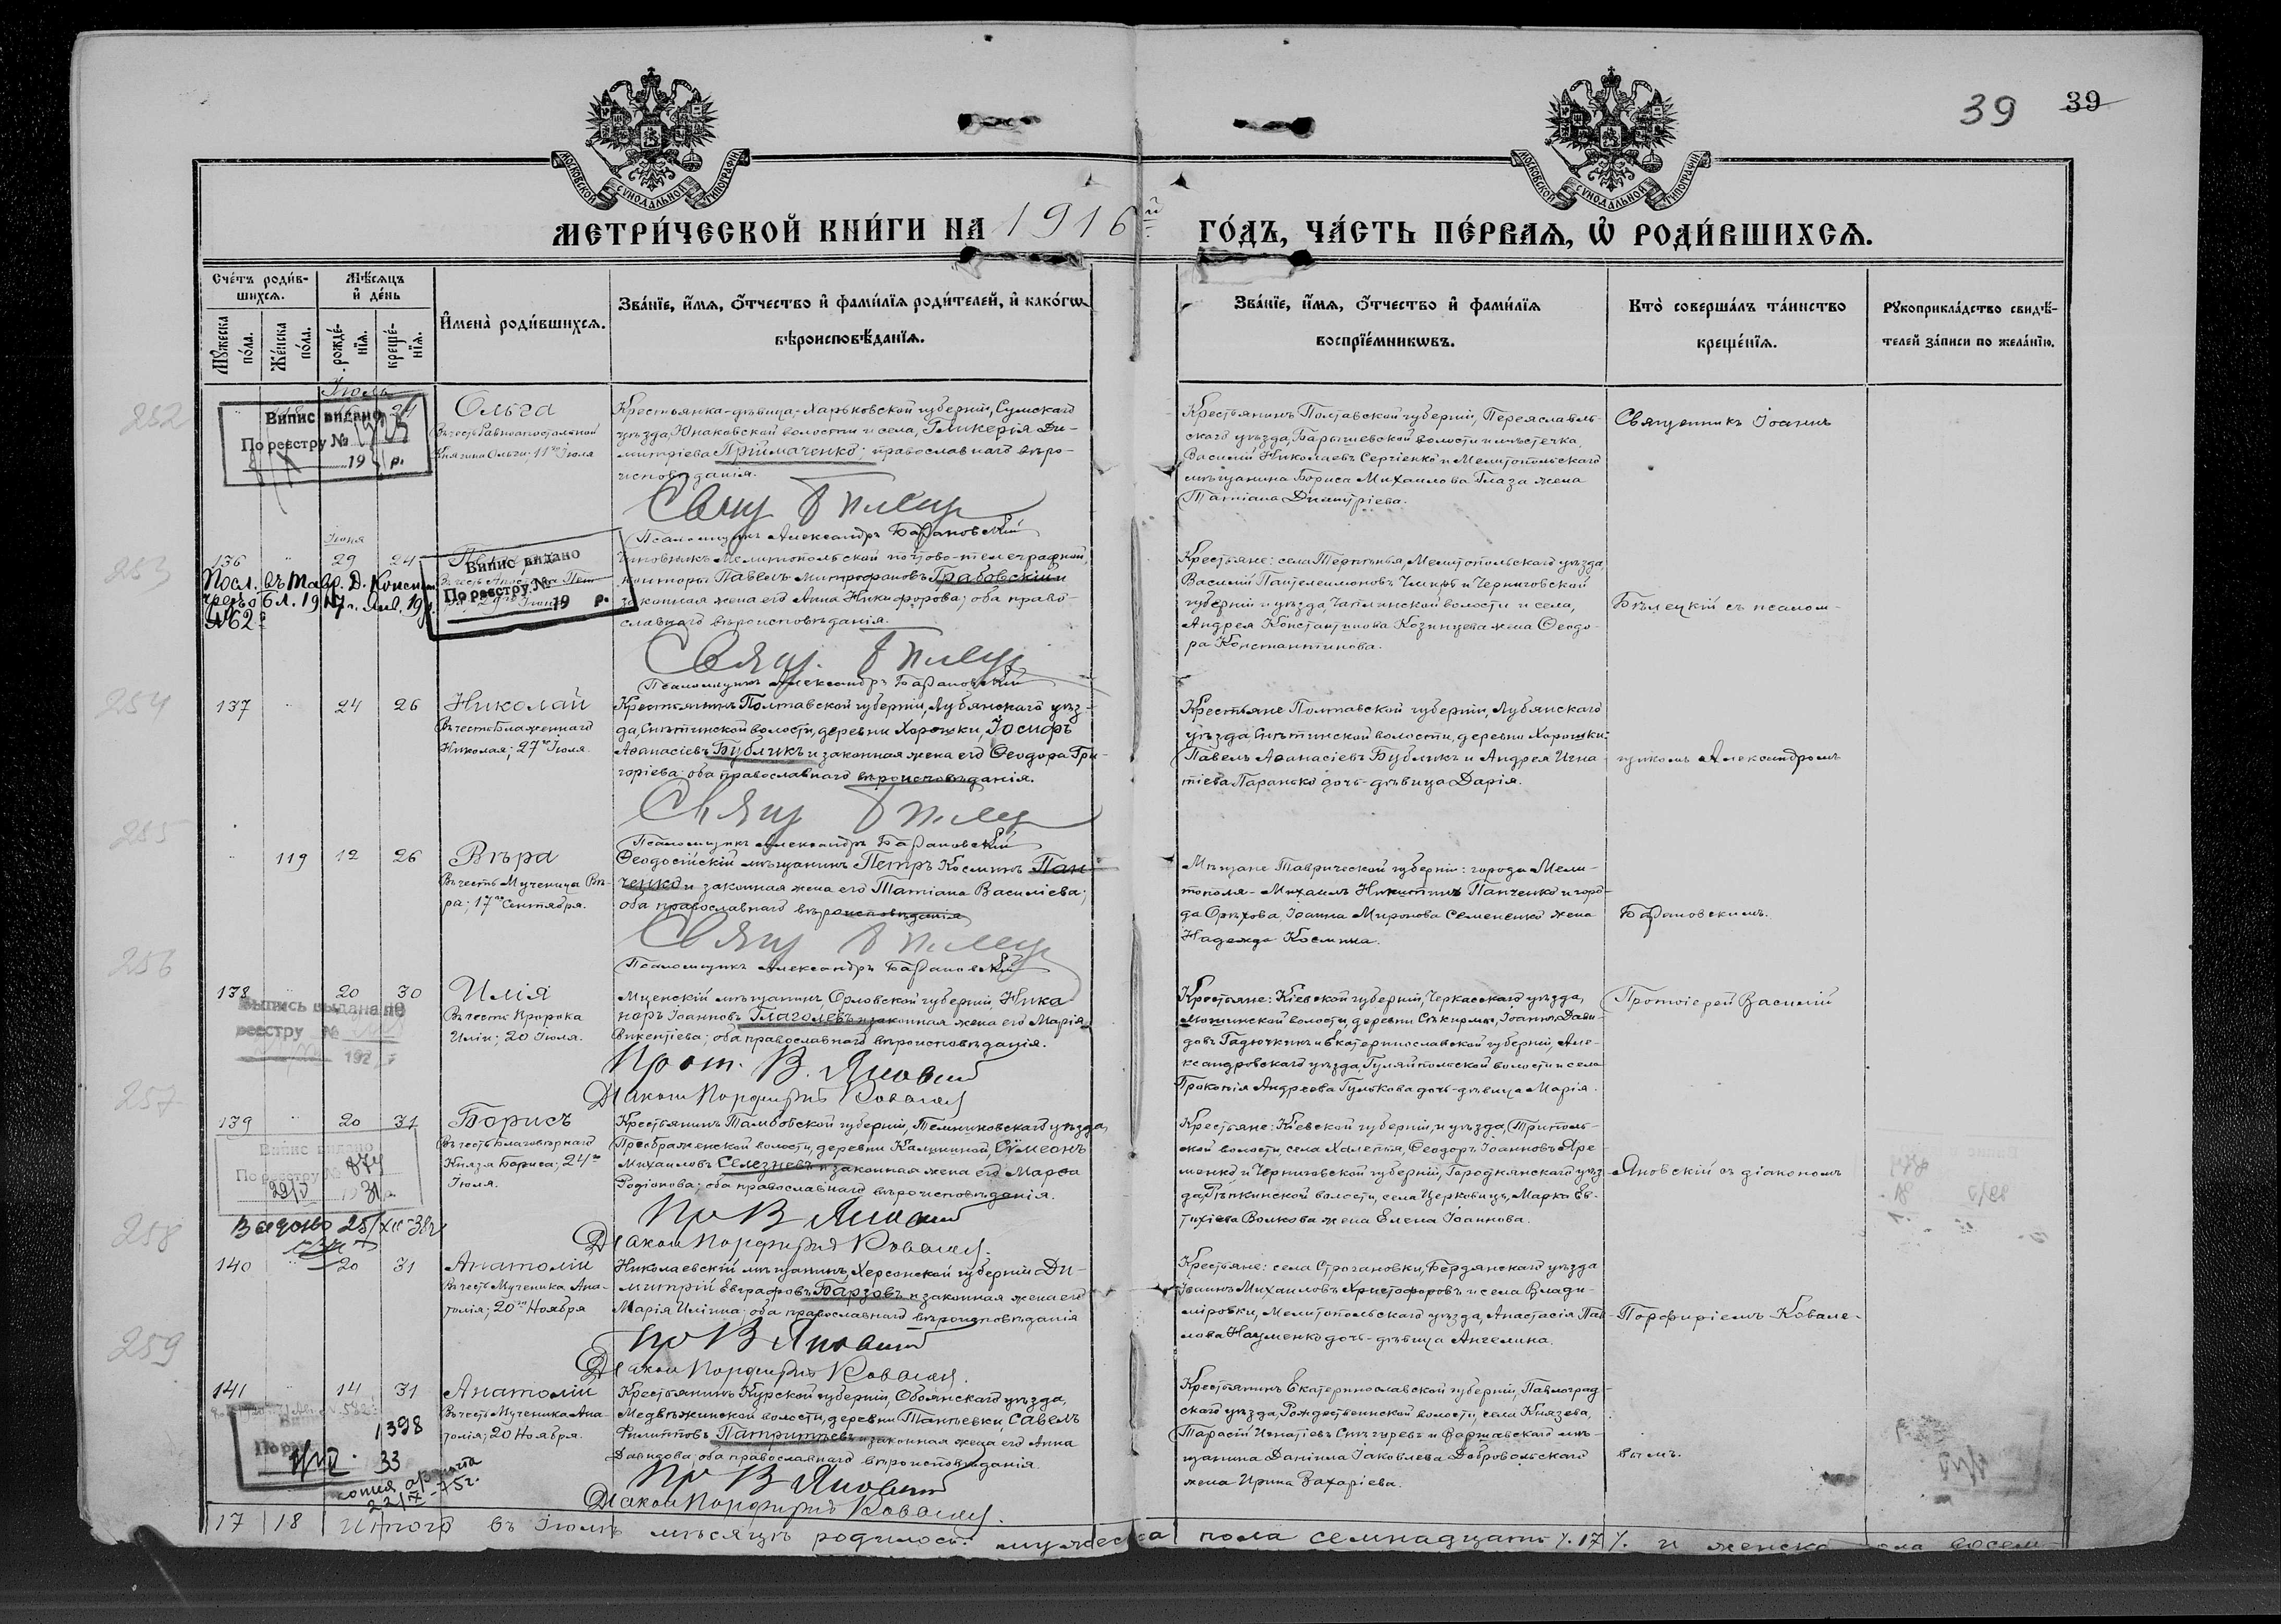 39 39
МОСКОВСКОЙ СУНОДАЛЬНОЙ ТИПОГРАФІИ
МОСКОВСКОЙ СУНОДАЛЬНОЙ ТИПОГРАФІИ
МЕТРИ́ЧЕСКОЙ КНИ́ГИ НА 1916й ГО́ДЪ, ЧА́СТЬ ПЕ́РВАЯ, Ѽ РОДИ́ВШИХСЯ.
Сче́тъ роди́в-
шихся.
Мѣ́сяцъ
и҆ де́нь
Му́жеска по́ла.
Же́нска по́ла.
рожде́-
нїя.
креще́-
нїя.
И҆мена̀ роди́вшихся.
Зва́нїе, и҆́мя, ѻ҆́тчество и҆ фами́лїя роди́телей, и҆ како́гѡ
вѣроисповѣ́данїя.
Зва́нїе, и҆́мя, ѻ҆́тчество и҆ фами́лїя
воспрїе́мникѡвъ.
Кто̀ соверша́лъ та́инство
креще́нїя.
Рꙋкоприкла́дство свидѣ́-
телей за́писи по жела́нїю.
Іюль
252
24
Ольга
Въ честь Равноапостольной
Княгини Ольги; 11го Іюля
Випис видано
По реєстру №
19 р.
Крестьянка-дѣвица, Харьковской губерніи, Сумскаго
уѣзда, Юнаковской волости и села, Гликерія Ди-
митріева Прійmаченко; православнаго вѣро-
исповѣданія.
Псаломщикъ Александръ Барановскій
Крестьянинъ Полтавской губерніи, Переяславль-
скаго уѣзда, Барышевской волости и мѣстечка,
Василій Николаевъ Сергіенко и Мелитопольскаго
мѣщанина Бориса Михаилова Глаза жена
Татіана Димитріева.
Священникъ Іоаннъ
253
136
Іюня
29 24
Випис видано
По реєстру №
19 р.
№ 62
Чиновникъ Мелитопольской почтово-телеграфной
конторы Павелъ Митрофановъ Грабовскій и
законная жена его Анна Никифорова; оба право-
славнаго вѣроисповѣданія.
Псаломщикъ Александръ Барановскій
Крестьяне: села Терпѣнья, Мелитопольскаго уѣзда,
Василій Пантелеимоновъ и Черниговской
губерніи и уѣзда, волости и села,
Андрея Константинова Козинцева жена Ѳеодо-
ра Константинова.
Бѣлецкій съ псалом-
254
137 24 26
Николай
Въ честь Блаженнаго
Николая; 27го Іюля.
Крестьянинъ Полтавской губерніи, Лубянскаго уѣз-
да, Снѣтинской волости, деревни Хорошки, Іосифъ
Аѳанасіевъ Бубликъ и законная жена его Ѳеодора Гри-
горіева; оба православнаго вѣроисповѣданія.
Псаломщикъ Александръ Барановскій
Крестьяне Полтавской губерніи, Лубянскаго
уѣзда Снѣтинской волости, деревни Хорошки:
Павелъ Аѳанасіевъ Бубликъ и Андрея Игна
тіева Паранько дочь-дѣвица Дарія.
щикомъ Александромъ
255
119 12 26
Вѣра
Въ честь Мученицы Вѣ-
ра; 17го Сентября.
Ѳеодосійскій мѣщанинъ Петръ Косминъ Пан-
ченко и законная жена его Татіана Василіева;
оба православнаго вѣроисповѣданія
Псаломщикъ Александръ Барановскій
Мѣщане Таврической губерніи: города Мели-
тополя - Михаилъ Никитинъ Панченко и горо-
да Орѣхова, Іоанна Миронова Семененко жена
Надежда Космина.
Барановскимъ.
256
138 20 30
Илія
Въ честь Пророка
Иліи; 20 Іюля.
Выпись выдана по
реестру №
192 г
Мценскій мѣщанинъ, Орловской губерніи, Ника-
норъ Іоанновъ Глаголевъ и законная жена его Марія
Викентіева; оба православнаго вѣроисповѣданія.
Прот. В. Яновскій
Діаконъ Порфирій Ковалев
Крестьяне: Кіевской губерніи, Черкасскаго уѣзда,
Мошинской волости, деревни Сѣкирны, Іоаннъ Дави-
довъ Гадючкинъ и Екатеринославской губерніи, Але-
ксандровскаго уѣзда, Гуляйпольской волости и села
Прокопія Андреева Гулькова дочь-дѣвица Марія.
Протоіерей Василій
257
139 20 31
Борисъ
Въ честь Благовѣрнаго
Князя Бориса; 24го
Іюля.
Випис видано
По реєстру № 874
29/V 1931 р.
Крестьянинъ Тамбовской губерніи, Темниковскаго уѣзда,
Преображенской волости, деревни Калининой, Сѵмеонъ
Михаиловъ Селезневъ и законная жена его Марѳа
Родіонова; оба православнаго вѣроисповѣданія.
Пр В Яновскій
Діаконъ Порфирій Ковалев.
Крестьяне: Кіевской губерніи, и уѣзда, Триполь-
ской волости, села Халепья, Ѳеодоръ Іоанновъ Яре
менко и Черниговской губерніи, Городнянскаго уѣз-
да, Рѣпкинской волости, села Церковищъ, Марка Ев-
тихіева Волкова жена Елена Іоаннова.
Яновскій съ діакономъ
258
140 20 31
Анатолій
Въ честь Мученика Ана-
толія; 20го Ноября
Николаевскій мѣщанинъ, Херсонской губерніи Ди-
митрій Евграфовъ Барзовъ и законная жена его
Марія Иліина; оба православнаго вѣроисповѣданія
Пр В Яновскій
Діаконъ Порфирій Ковалев.
Крестьяне: села Строгановки, Бердянскаго уѣзда
Іоаннъ Михаиловъ Христофоровъ и села Влади-
міровки, Мелитопольскаго уѣзда, Анастасія Пав-
лова Науменко дочь-дѣвица Ангелина.
Порфиріемъ Ковале-
259
141 14 31
Анатолій
Въ честь Мученика Ана-
толія; 20 Ноября.
1398
33
22/IX-75г.
Крестьянинъ Курской губерніи, Обоянскаго уѣзда,
Медвѣжинской волости, деревни Танѣевки, Савелъ
Филипповъ Патритѣевъ и законная жена его Анна
Давидова; оба православнаго вѣроисповѣданія.
Пр В Яновскій
Діаконъ Порфирій Ковалев.
Крестьянинъ Екатеринославской губерніи, Павлоград-
скаго уѣзда, Рождественской волости, села Князева,
Тарасій Игнатіевъ Снѣгуревъ и Варшавскаго мѣ-
щанина Даніила Іаковлева Добровольскаго
жена Ирина Захаріева.
вымъ.
17 18 Итого въ Іюлѣ мѣсяцѣ родилось: мужеска пола семнадцать /.17/. и женска пола восем-